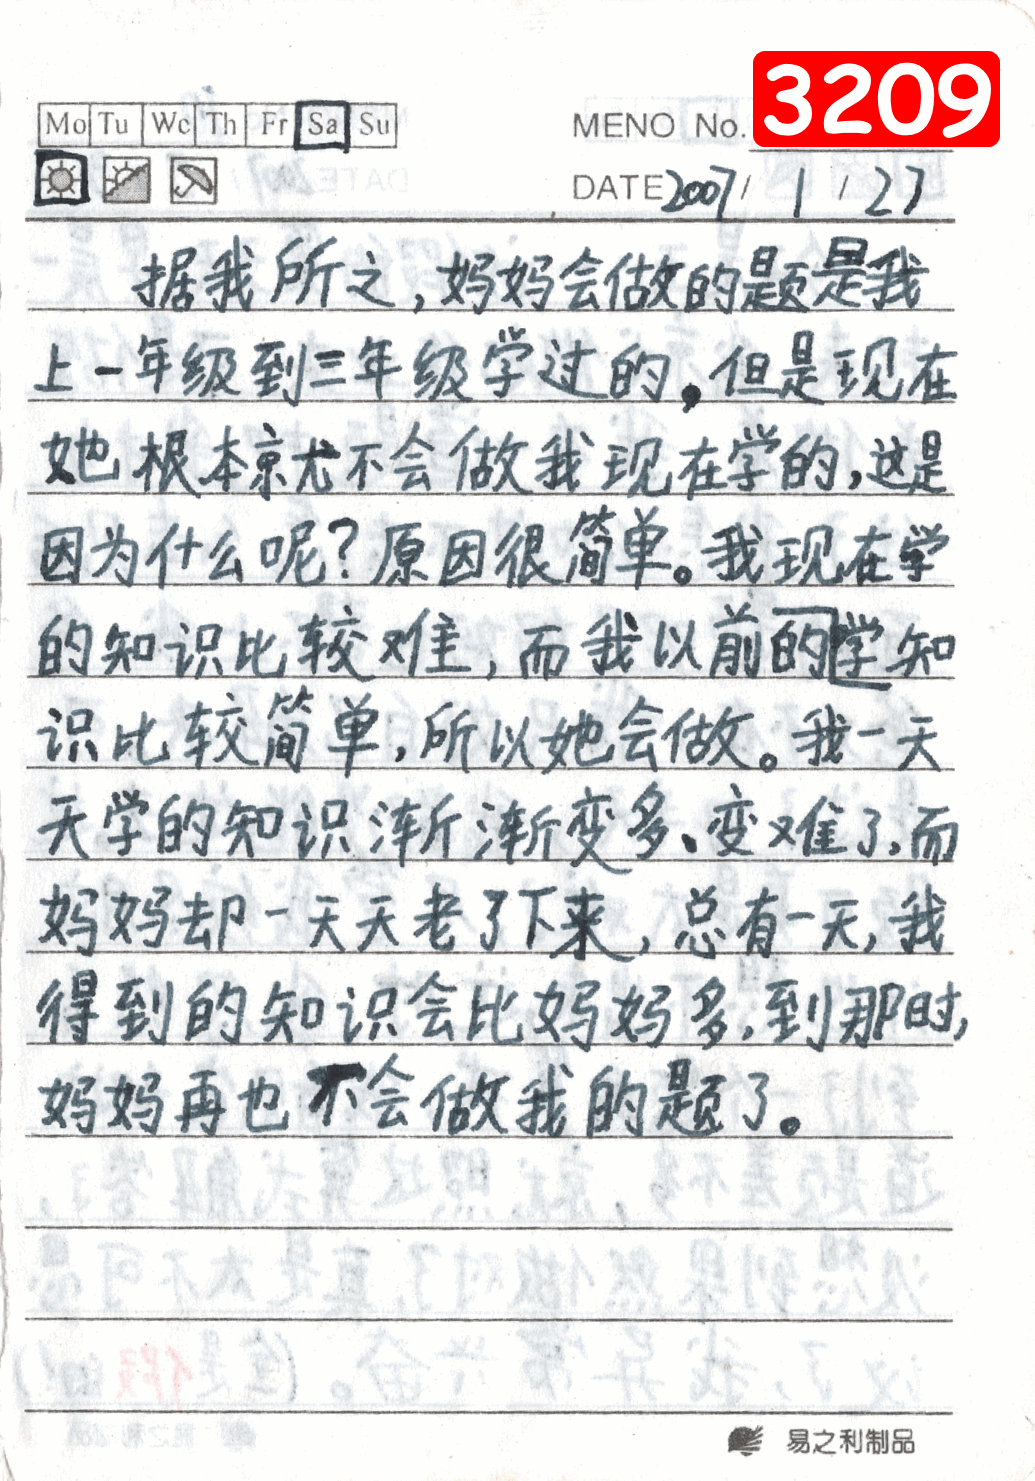 3209
Mo Tu We Th Fr Sa Su
MENO No.
DATE 2007 / 1 / 27
据我所之，妈妈会做的题是我
上一年级到三年级学过的，但是现在
她根本就不会做我现在学的，这是
因为什么呢？原因很简单。我现在学
的知识比较难，而我以前的学知
识比较简单，所以她会做。我一天
天学的知识渐渐变多、变难了，而
妈妈却一天天老了下来，总有一天，我
得到的知识会比妈妈多，到那时，
妈妈再也不会做我的题了。
易之利制品